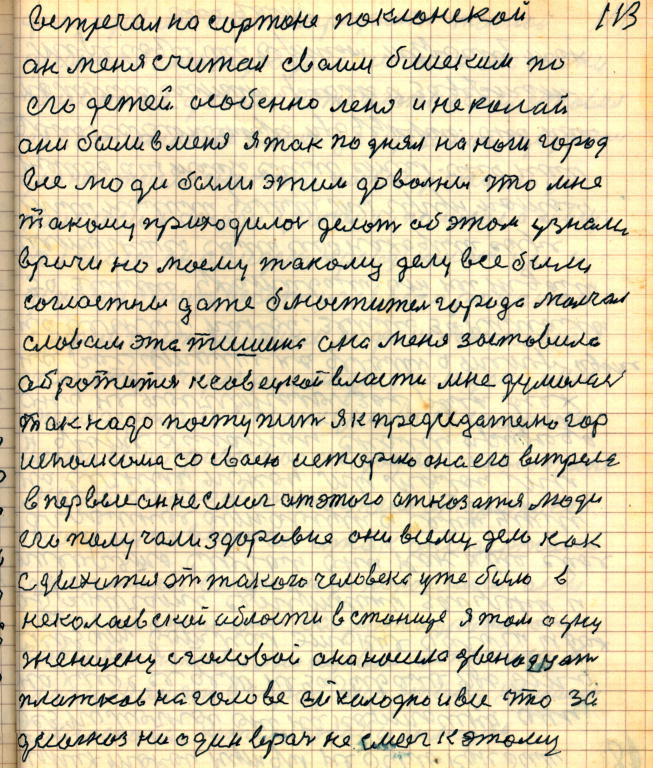 встречал на сартоне поклонской 113
он меня считал своим блиским по
его детей особенно леня и неколай
они были в меня я так поднял на ноги город
все люди были этим довольны что мне
такому приходилос делат об этом узнали
врачи но моему такому делу все были
согластны даже блюстител города молчал
словам эта тишина она меня зостовила
обротится к совецкой власти мне думолас
так надо поступит я к председателю гор
исполкома со своею историю она его встреле
впервые он не смог от этого откозатя люди
его получали здоровие они всему дело как
сдвихатся от такого человека уже было в
неколаевской области в станице я там одну
женщену с головой она носила двенадцат
платков на голове ей холодно и все что за
диогноз ни один врач не смог к этому